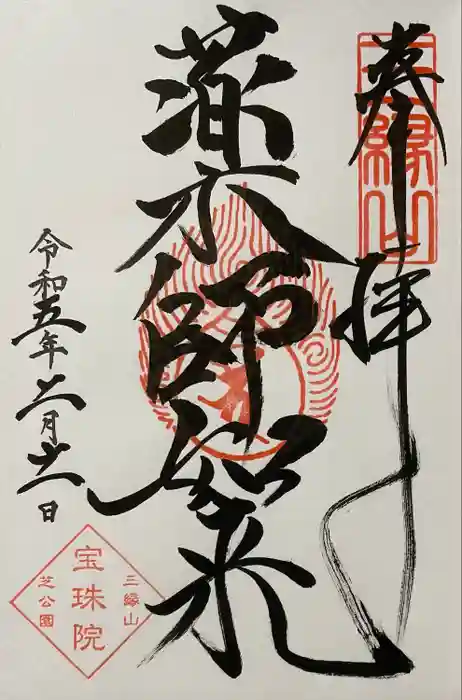 奉拝
三縁山
薬師如来
令和五年 月 日
三縁山
宝珠院
芝公園